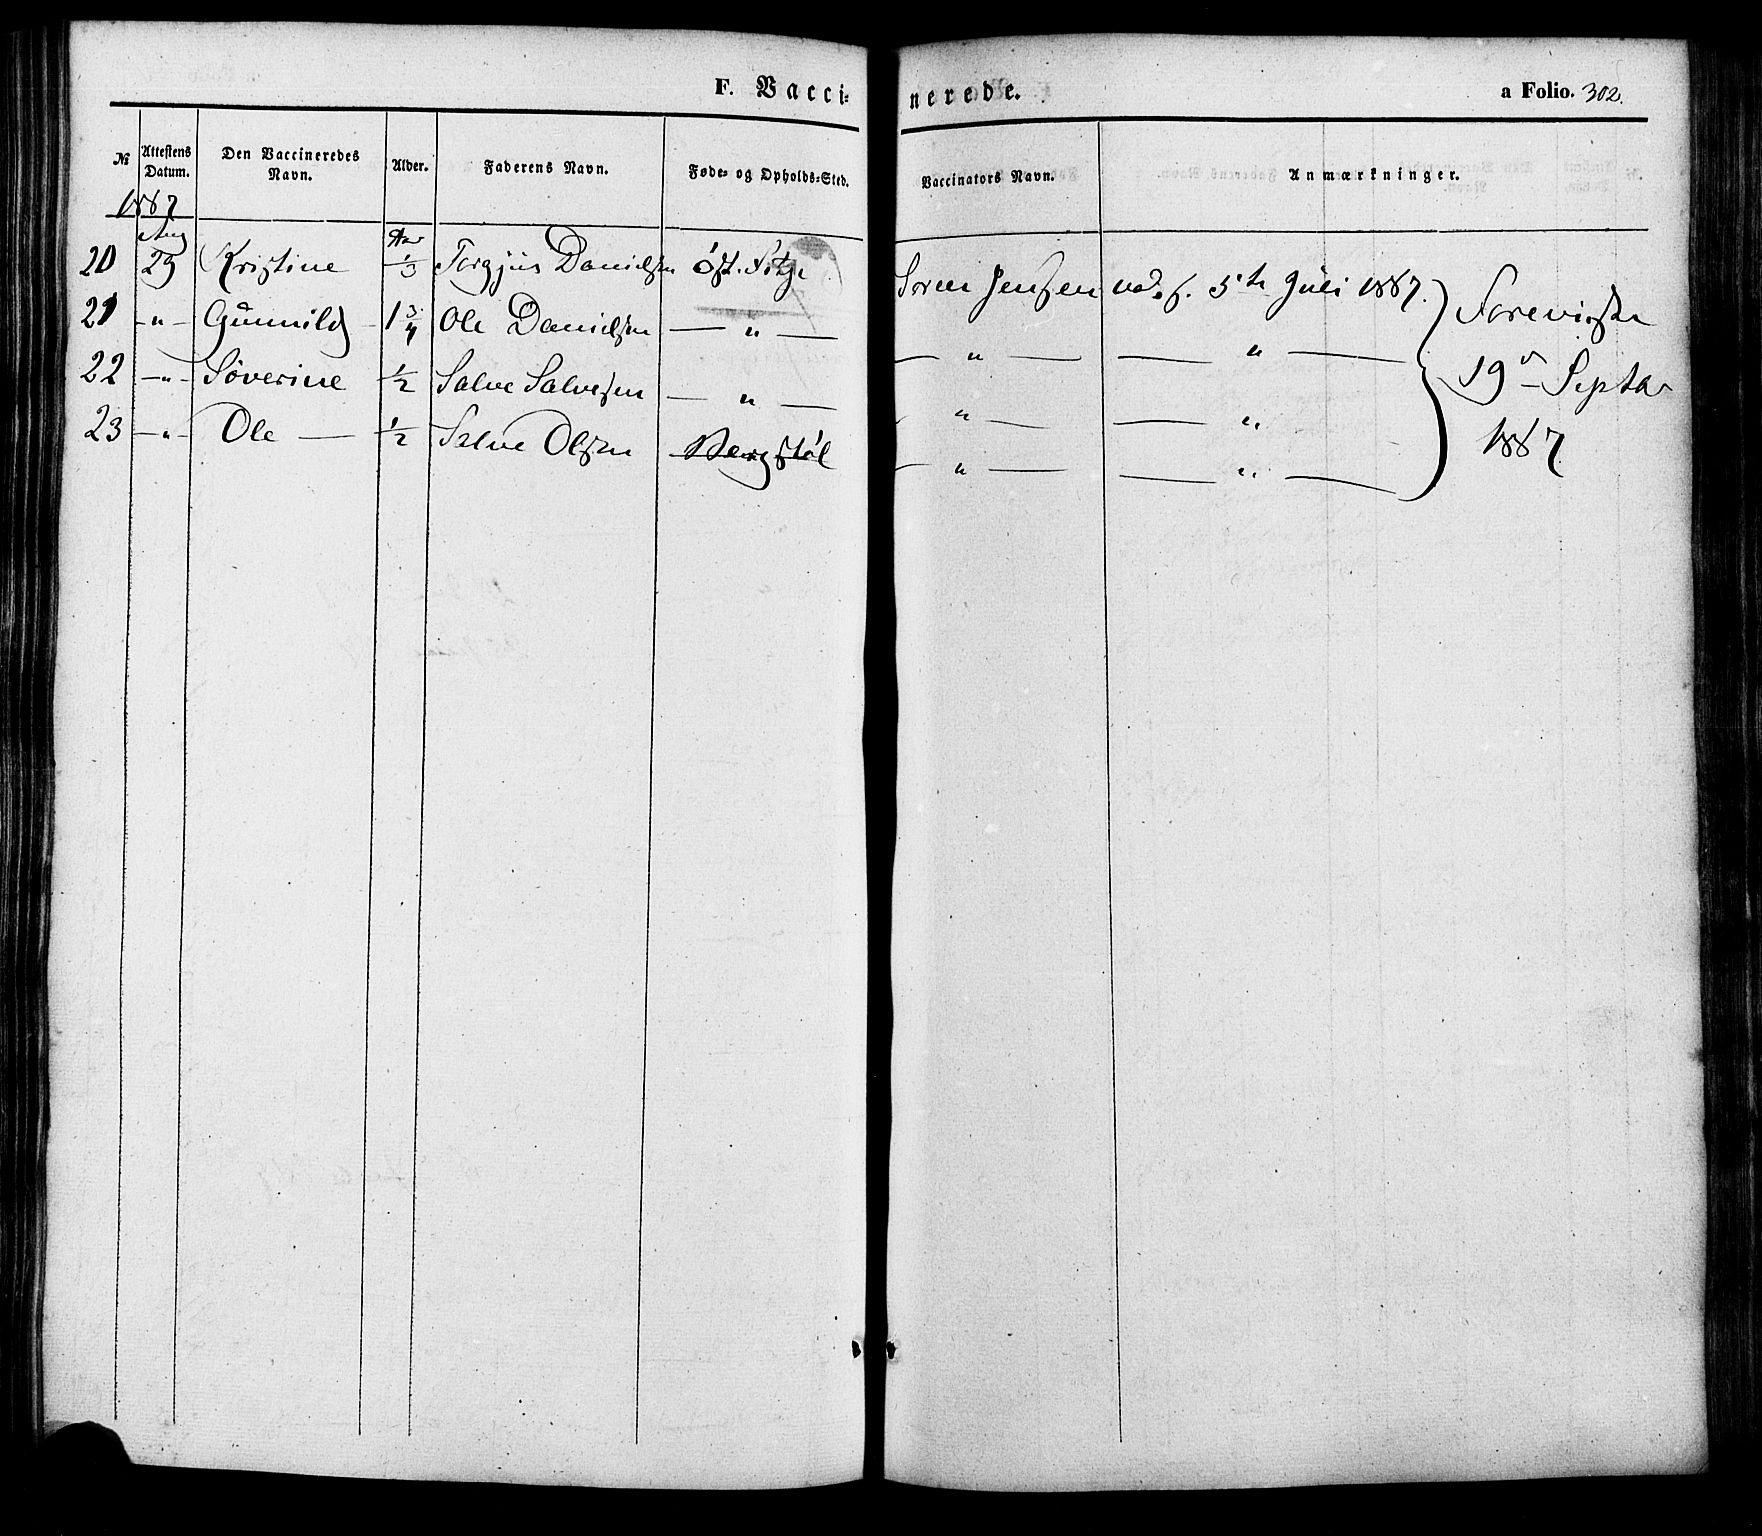 F. Vacci-nerede. a Folio. 302.
№ Attestens Datum. Den Vaccineredes Navn. Alder. Faderens Navn. Føde- og Opholds-Sted. Vaccinators Navn. Anmærkninger.
1887
Aug Aar
20 29 Kristine 1/3 Torgjus Danielsen Øst. Fitje Søren Jensen 5te Juli 1887.
21 -„- Gunnild 1 3/4 Ole Danielsen — „ — — „ — — „ —
22 -„- Søverine 1/2 Salve Salvesen — „ — — „ — — „ —
23 -„- Ole — 1/2 Salve Olsen Bergstøl — „ — — „ —
Foreviste
19de Septbr
1887